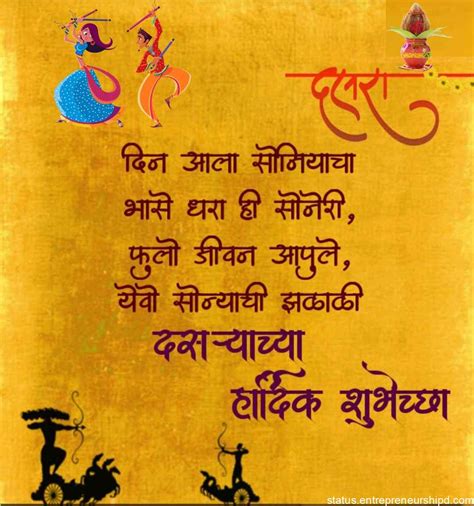 दसरा
दिन आला सोमियाचा
भासे धरा ही सोनेरी,
फुलो जीवन आपुले,
येवो सोन्याची झळाळी
दसऱ्याच्या
हार्दिक शुभेच्छा
status.entrepreneurshipd.com